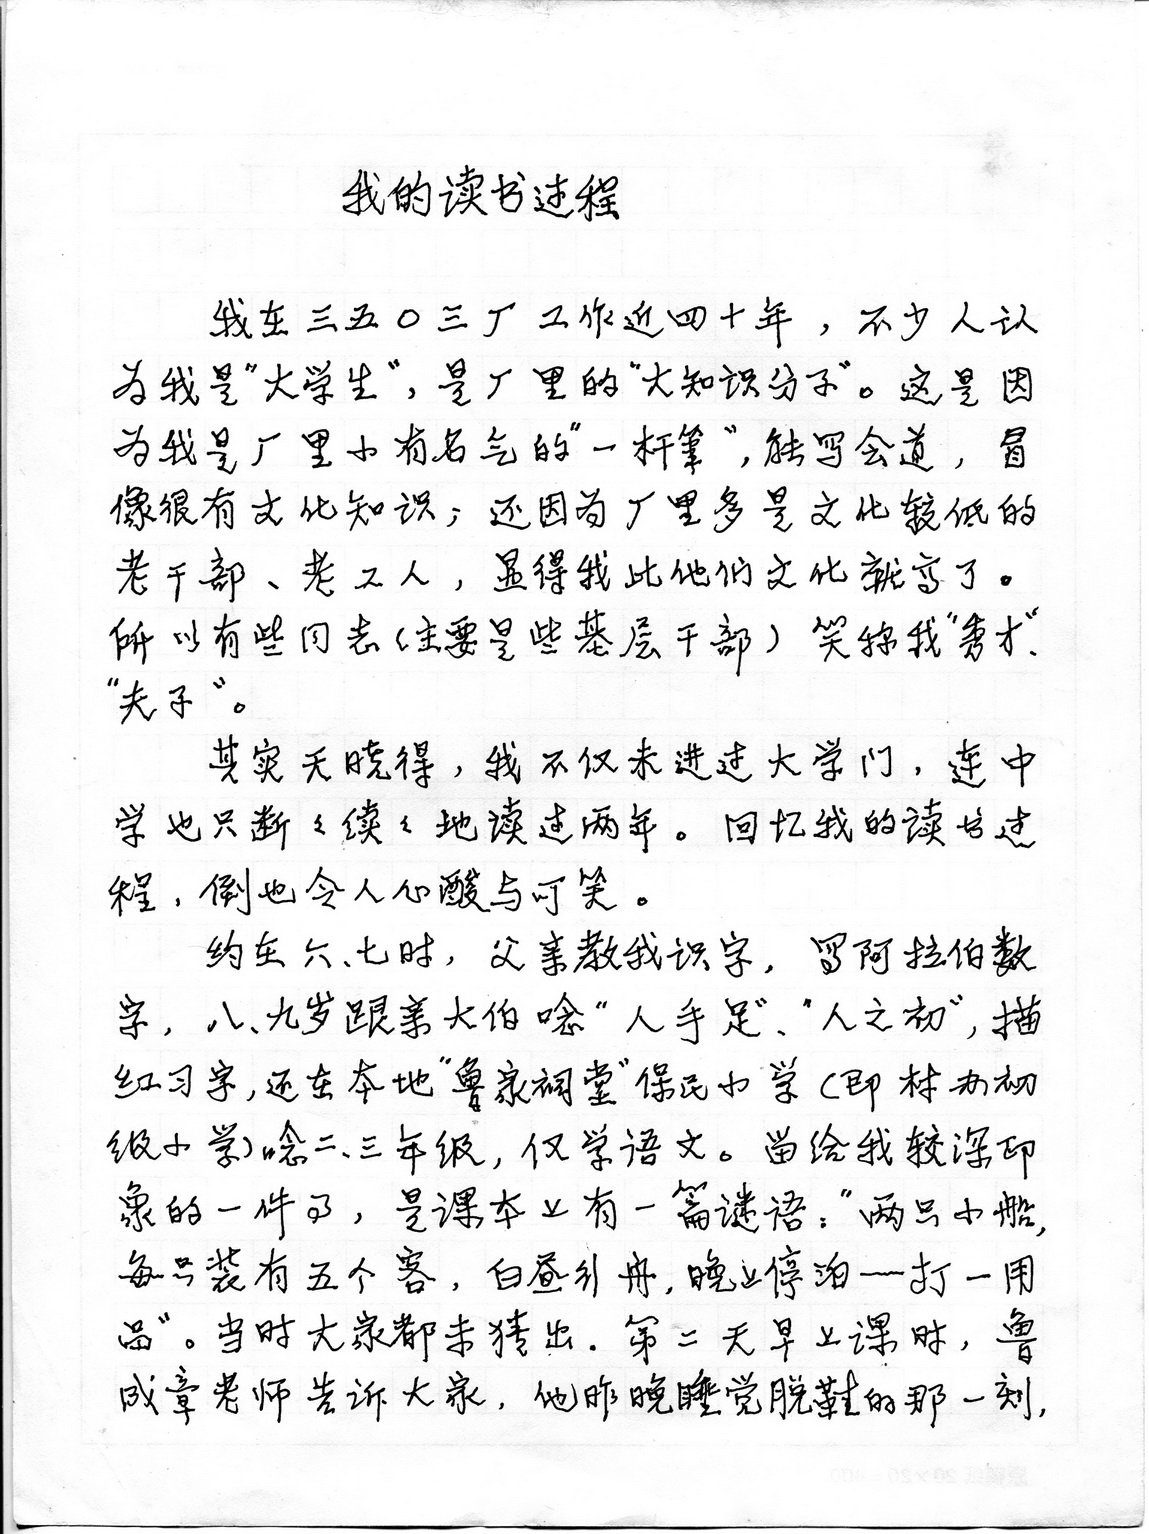 我的读书过程
我在三五〇三厂工作近四十年，不少人认
为我是“大学生”，是厂里的“大知识分子”。这是因
为我是厂里小有名气的“一杆笔”，能写会道，冒
像很有文化知识；还因为厂里多是文化较低的
老干部、老工人，显得我比他们文化就高了。
所以有些同志（主要是些基层干部）笑称我“秀才”、
“夫子”。
其实天晓得，我不仅未进过大学门，连中
学也只断々续々地读过两年。回忆我的读书过
程，倒也令人心酸与可笑。
约在六、七时，父亲教我识字，写阿拉伯数
字，八、九岁跟亲大伯唸“人手足”、“人之初”，描
红习字，还在本地“鲁家祠堂”保民小学（即村办初
级小学）唸二、三年级，仅学语文。留给我较深印
象的一件事，是课本上有一篇谜语：“两只小船，
每只装有五个客，白昼行舟，晚上停泊——打一用
品”。当时大家都未猜出．第二天早上课时，鲁
成章老师告诉大家，他昨晚睡觉脱鞋的那一刻，